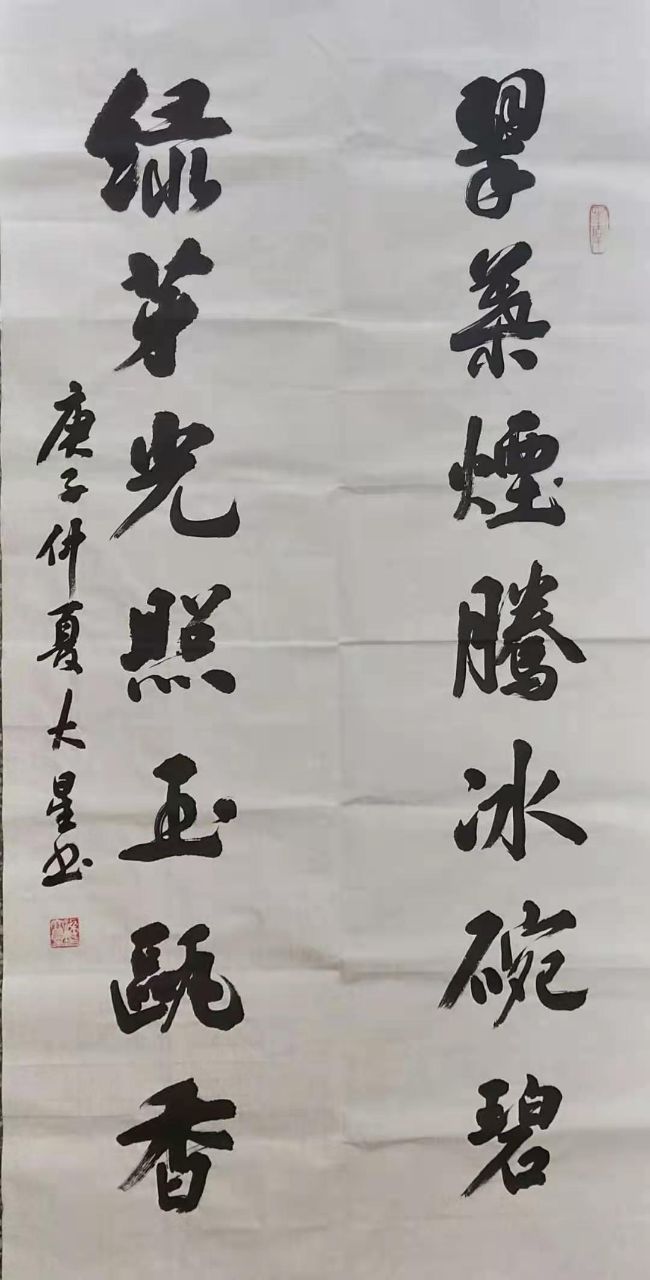 翠葉煙騰冰碗碧
绿芽光照玉甌香
庚子仲夏大星书